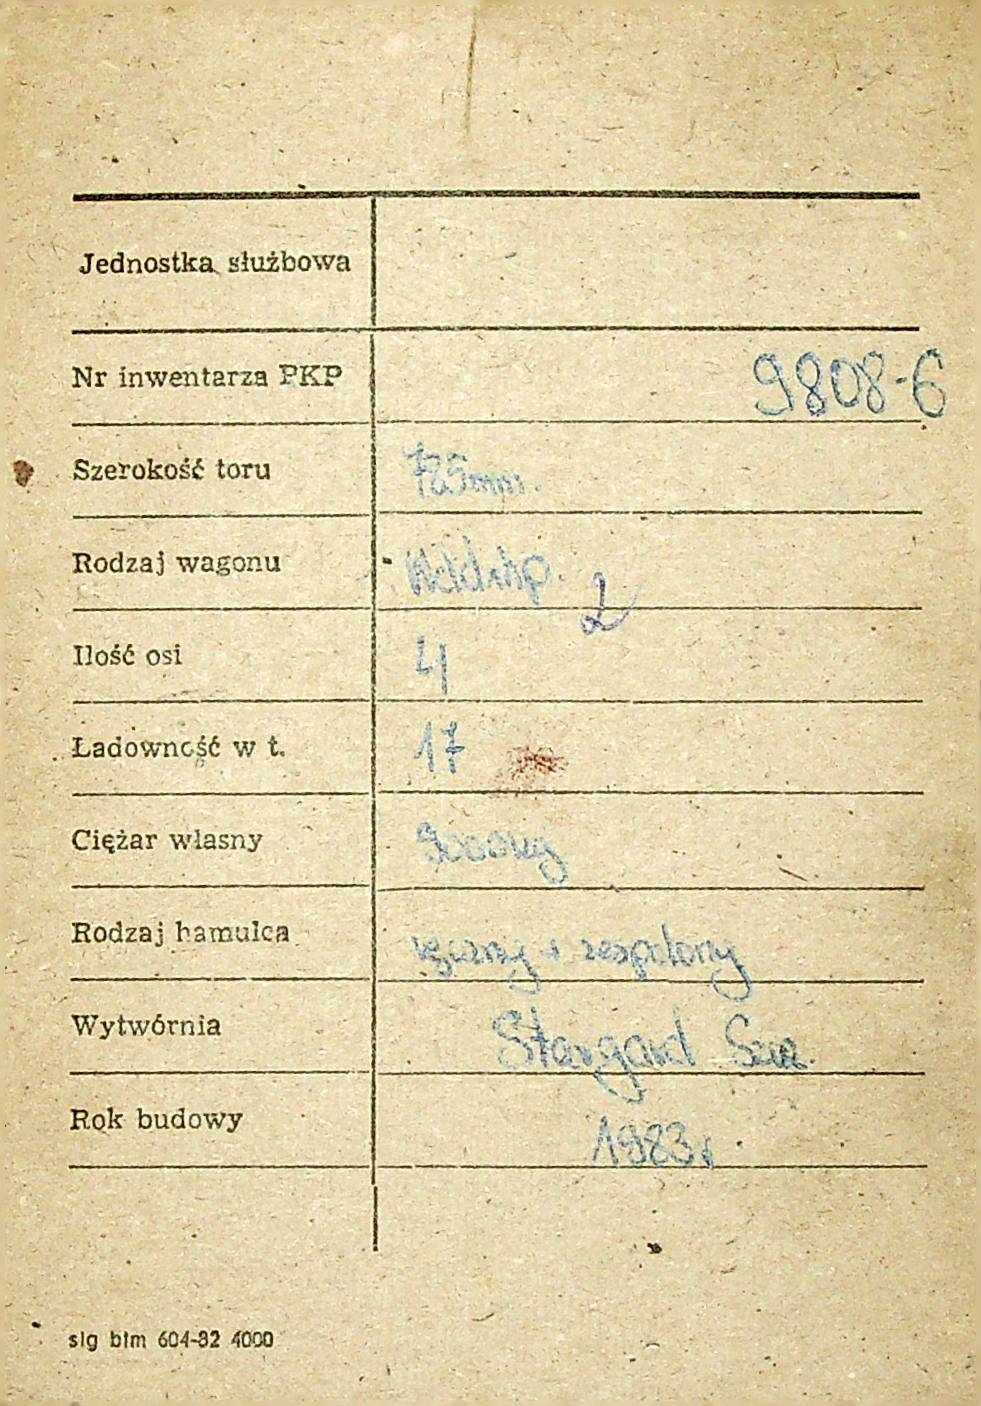 Jednostka służbowa
Nr inwentarza PKP 9808-6
Szerokość toru 785mm.
Rodzaj wagonu
2
Ilość osi 4
Ładowność w t. 17
Ciężar własny 9000kg
Rodzaj hamulca ręczny + zespolony
Wytwórnia Stargard Szcz.
Rok budowy 1983r.
slg blm 604-82 4000